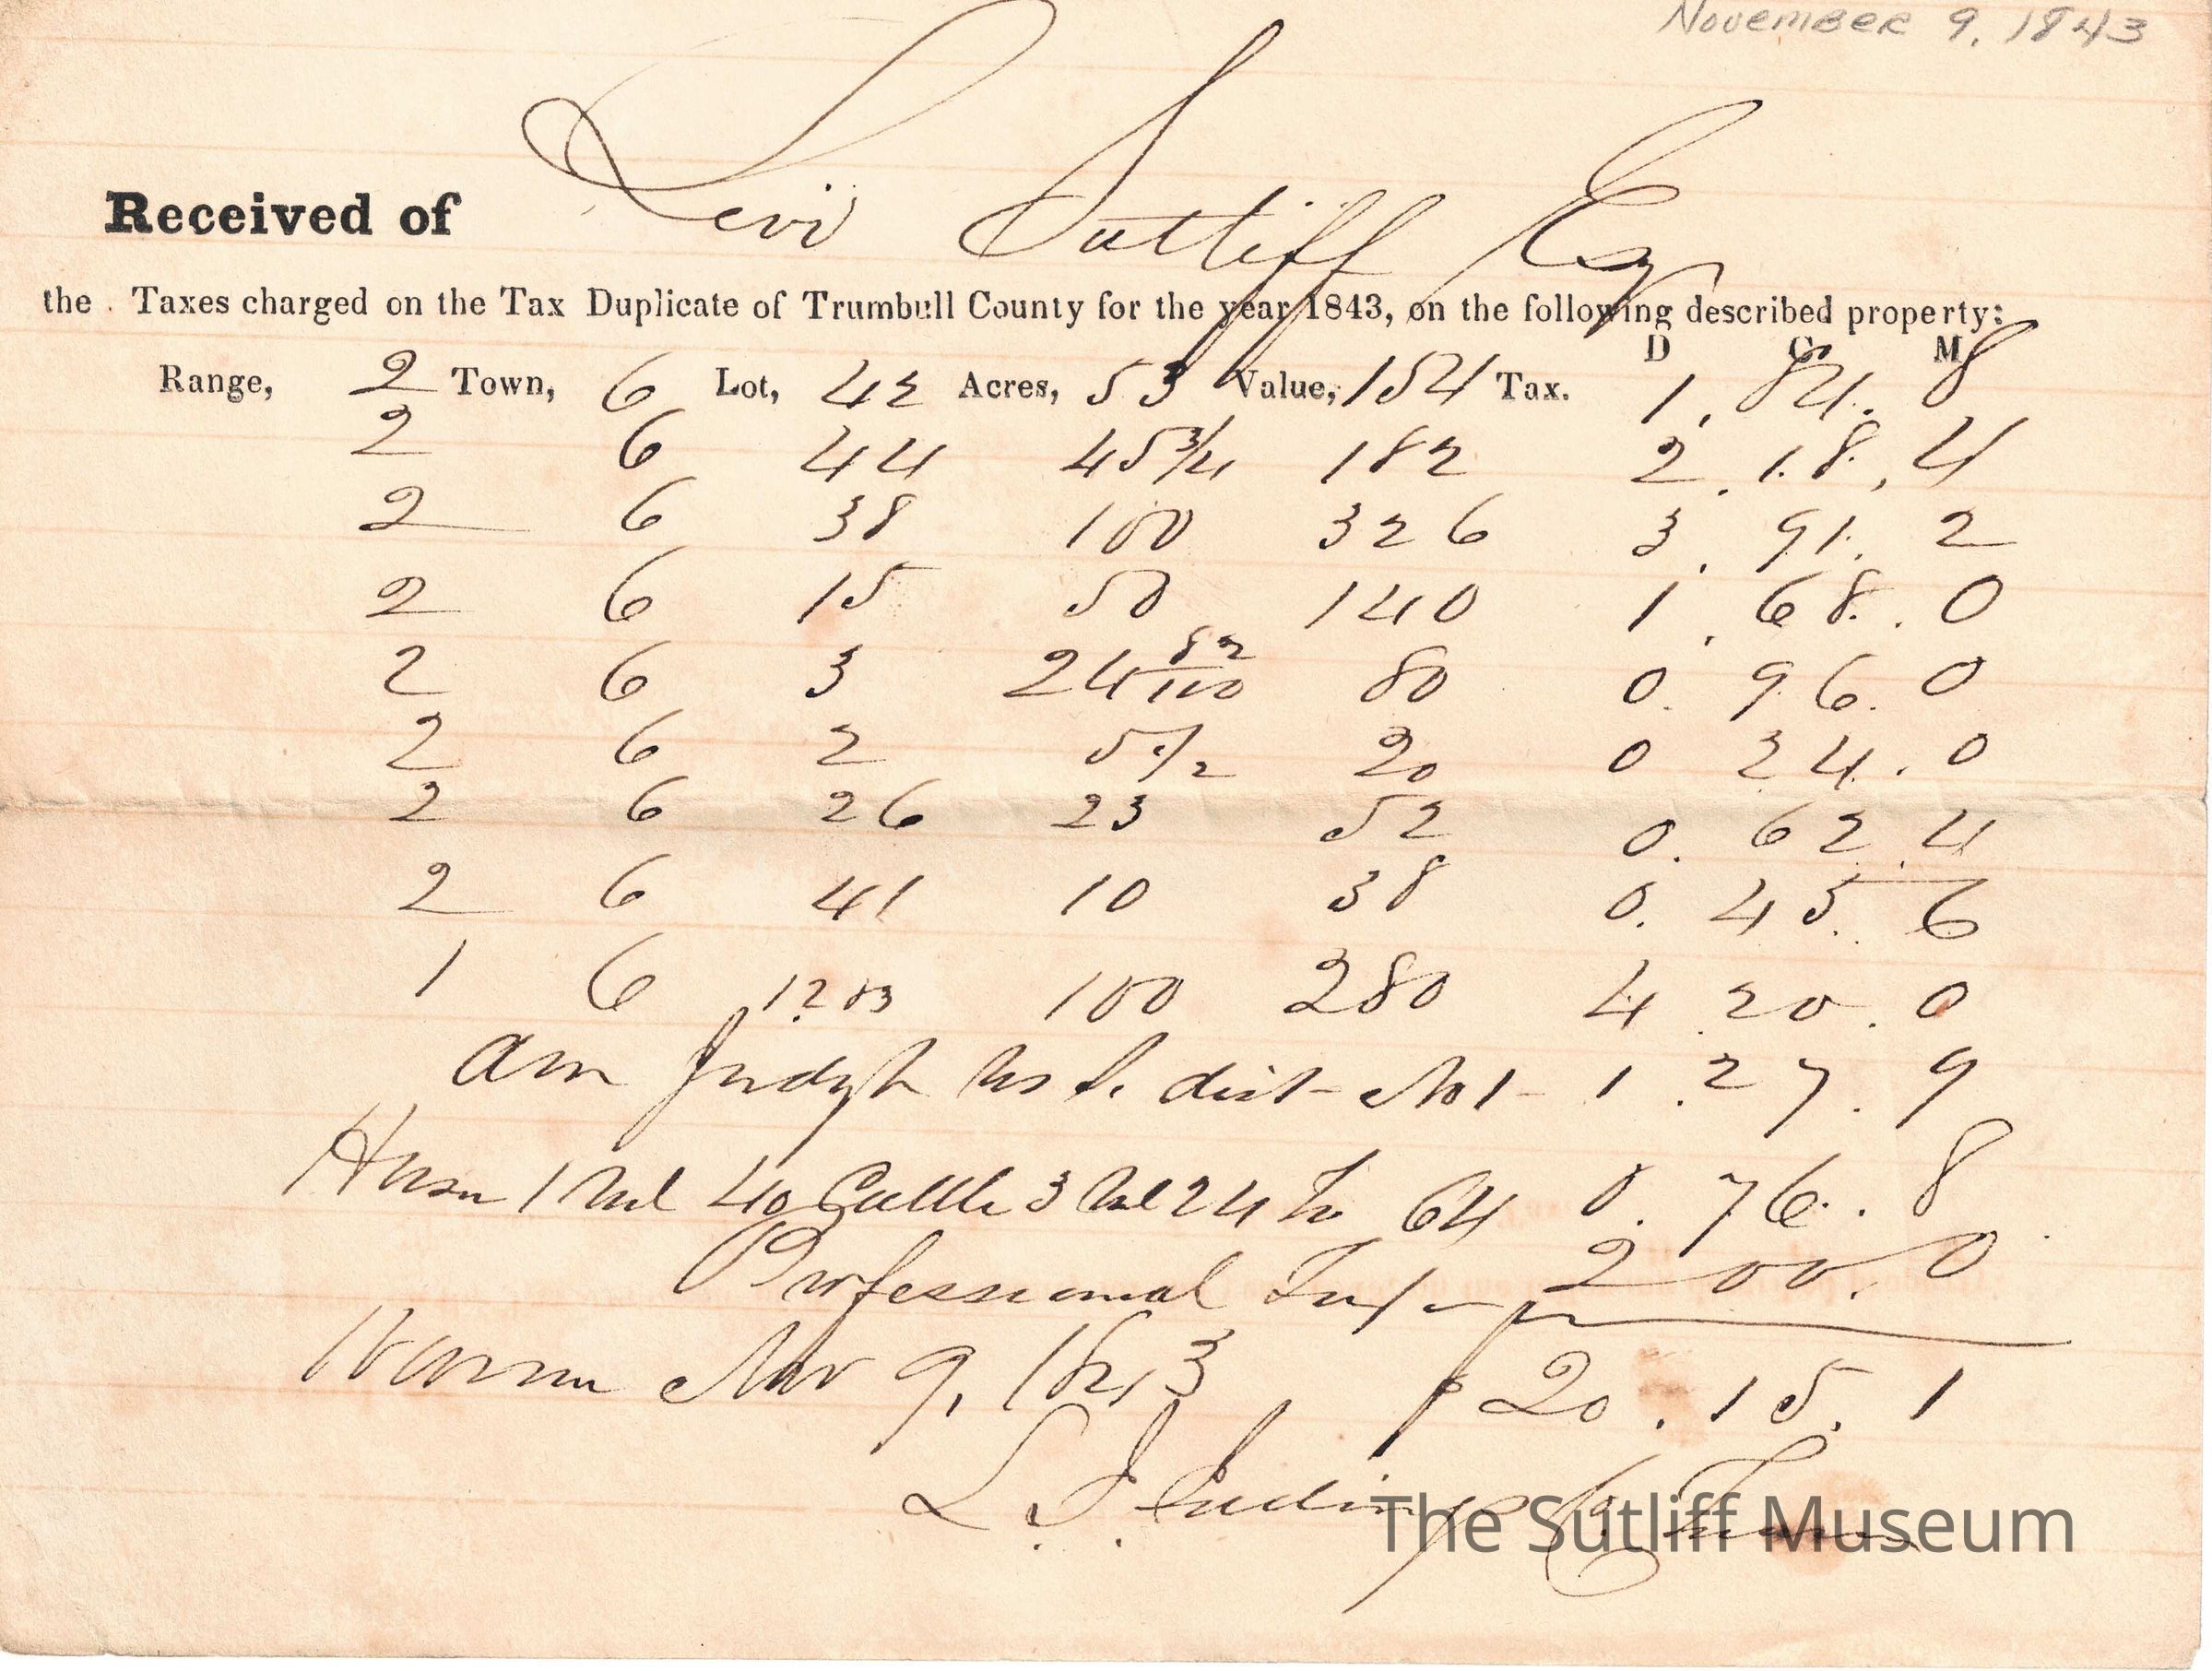 November 9, 1843
Received of Levi Sutliff Esq
the Taxes charged on the Tax Duplicate of Trumbull County for the year 1843, on the following described property:
D C. M
Range, 2 Town, 6 Lot, 42 Acres, 53 Value, 154 Tax. 1. 84. 8
2 6 44 45 3/4 182 2. 18. 4
2 6 38 100 326 3. 91. 2
2 6 15 50 140 1. 68. 0
2 6 3 24 82/100 80 0. 96. 0
2 6 2 5 1/2 20 0 24. 0
2 6 26 23 52 0. 62. 4
2 6 41 10 38 0. 45. 6
1 6 100 280 4. 20. 0
dist No 1 - 1. 27. 9
1 Val 40 Cattle 3 Val 24 64 0. 76. 8
Professional Tax 2 00. 0
Warren Nov 9, 1843 $ 20. 15. 1
The Sutliff Museum